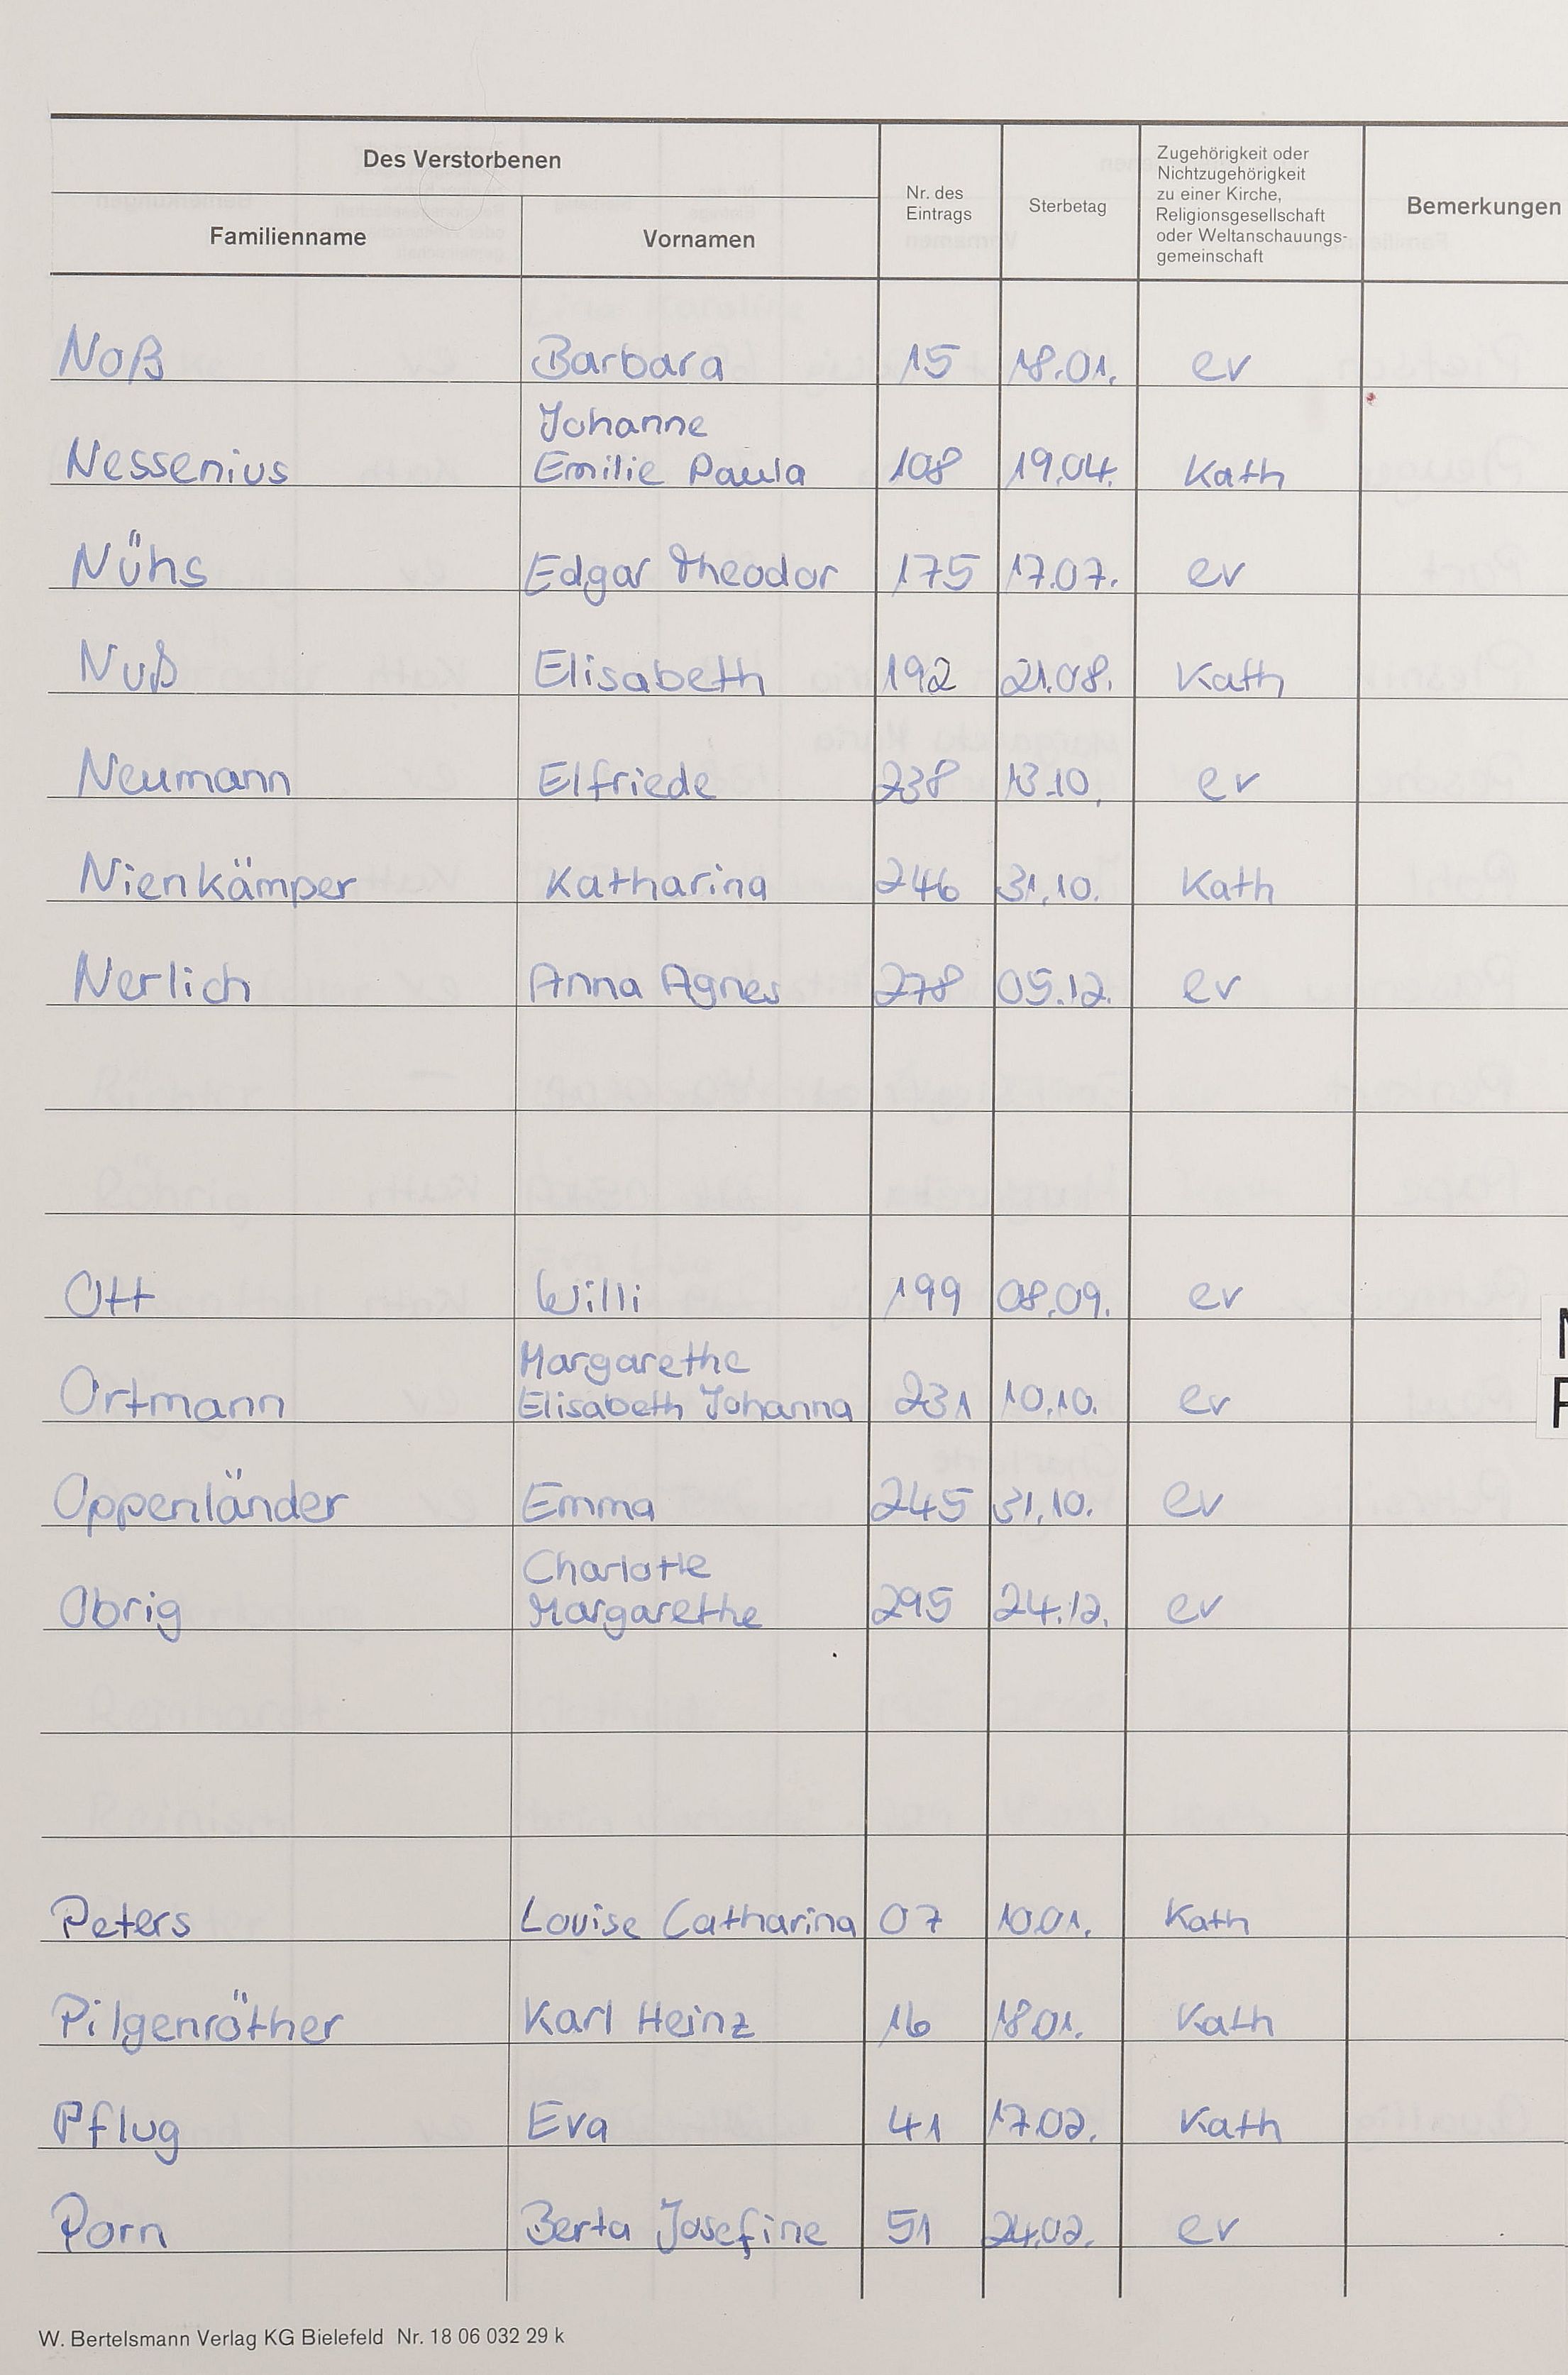 Des Verstorbenen
Familienname Vornamen Nr. des Eintrags Sterbetag Zugehörigkeit oder Nichtzugehörigkeit zu einer Kirche, Religionsgesellschaft oder Weltanschauungs-gemeinschaft Bemerkungen
Noß Barbara 15 18.01. ev
Johanne
Nessenius Emilie Paula 108 19.04. Kath
Nühs Edgar Theodor 175 17.07. ev
Nuß Elisabeth 192 21.08. Kath
Neumann Elfriede 238 13.10. ev
Nienkämper Katharina 246 31.10. Kath
Nerlich Anna Agnes 278 05.12. ev
Ott Willi 199 08.09. ev
Margarethe
Ortmann Elisabeth Johanna 231 10.10. ev
Oppenländer Emma 245 31.10. ev
Charlotte
Obrig Margarethe 295 24.12. ev
Peters Louise Catharina 07 10.01. Kath
Pilgenröther Karl Heinz 16 18.01. Kath
Pflug Eva 41 17.02. Kath
Porn Berta Josefine 51 24.02. ev
W. Bertelsmann Verlag KG Bielefeld Nr. 18 06 032 29 k